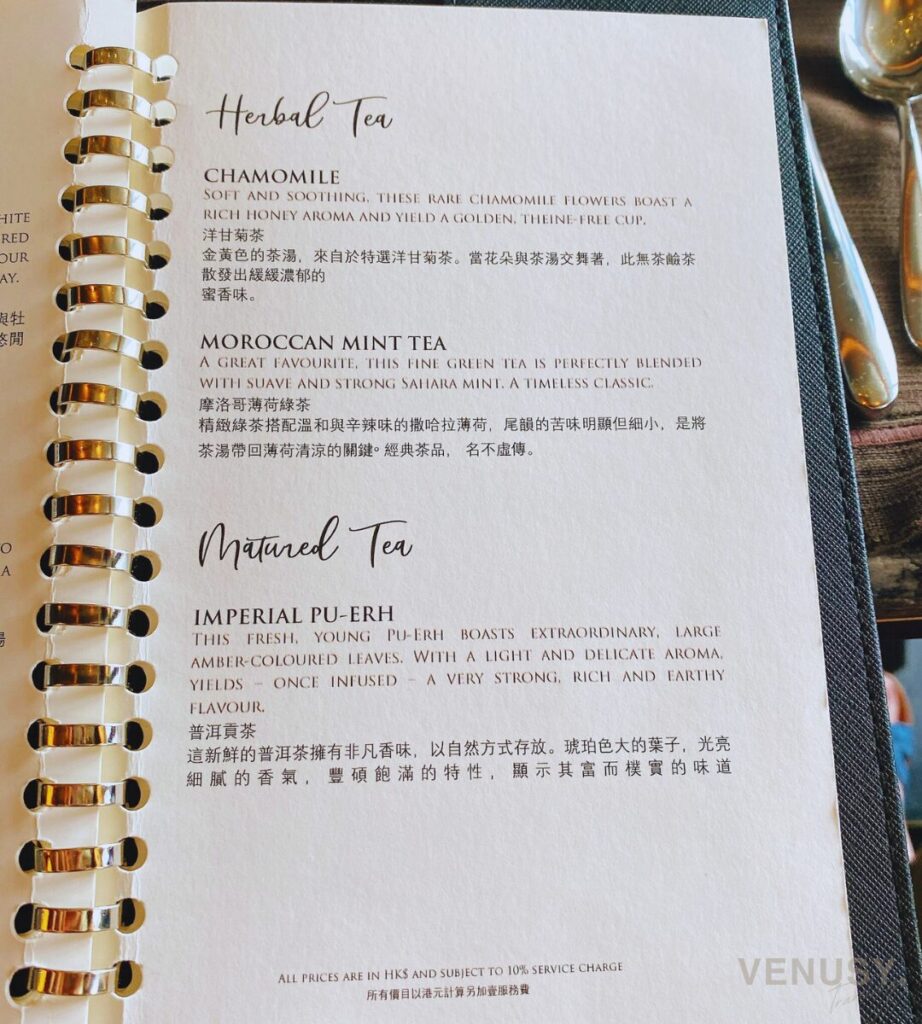 HITE
RED
OUR
AY.
與牡
悠閒
TO
A
湯
Herbal Tea
CHAMOMILE
SOFT AND SOOTHING, THESE RARE CHAMOMILE FLOWERS BOAST A
RICH HONEY AROMA AND YIELD A GOLDEN, THEINE-FREE CUP.
洋甘菊茶
金黃色的茶湯，來自於特選洋甘菊茶。當花朵與茶湯交舞著，此無茶鹼茶
散發出緩緩濃郁的
蜜香味。
MOROCCAN MINT TEA
A GREAT FAVOURITE, THIS FINE GREEN TEA IS PERFECTLY BLENDED
WITH SUAVE AND STRONG SAHARA MINT. A TIMELESS CLASSIC.
摩洛哥薄荷綠茶
精緻綠茶搭配溫和與辛辣味的撒哈拉薄荷，尾韻的苦味明顯但細小，是將
茶湯帶回薄荷清涼的關鍵。經典茶品， 名不虛傳。
Matured Tea
IMPERIAL PU-ERH
THIS FRESH, YOUNG PU-ERH BOASTS EXTRAORDINARY, LARGE
AMBER-COLOURED LEAVES. WITH A LIGHT AND DELICATE AROMA,
YIELDS – ONCE INFUSED – A VERY STRONG, RICH AND EARTHY
FLAVOUR.
普洱貢茶
這新鮮的普洱茶擁有非凡香味，以自然方式存放。琥珀色大的葉子，光亮
細膩的香氣，豐碩飽滿的特性，顯示其富而樸實的味道
ALL PRICES ARE IN HK$ AND SUBJECT TO 10% SERVICE CHARGE
所有價目以港元計算另加壹服務費
VENUSY